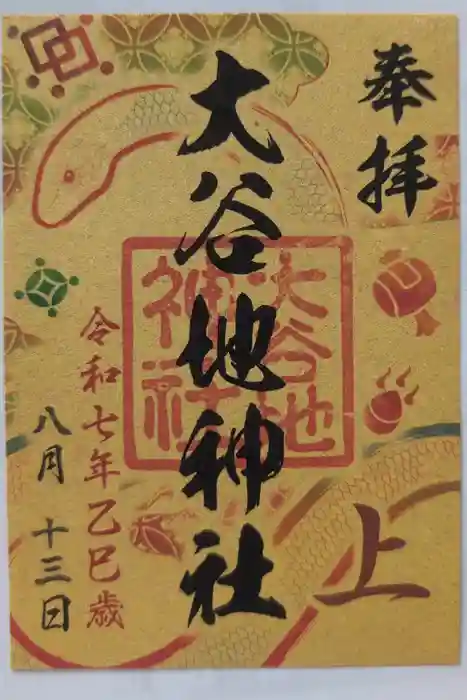 奉拝
上
大谷地神社
大谷地
神社
令和七年乙巳歳
八月 十三日